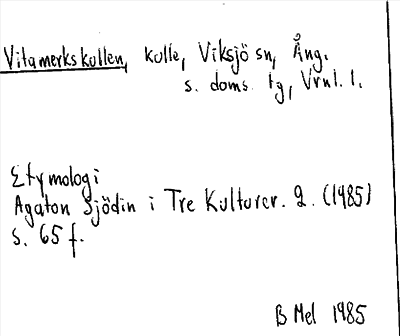 Vitamerkskullen, kulle, Viksjö sn, Ång.
s. doms. tg, Vrnl. l.
Etymologi
Agaton Sjödin i Tre Kulturer. 2. (1985)
s. 65 f.
B Mel 1985